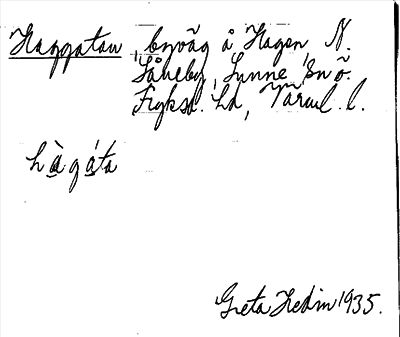 Haggatan, byväg å Hagen N.
Såneby, Sunne sn ö.
Fryksd. hd, Värml. l.
hàgáta
Greta Hedin 1935.